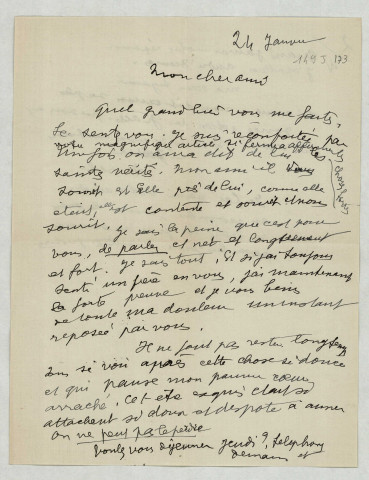 24 Janvier
149 J 173
Mon cher ami
Quel grand bien vous me faites,
Le sentez vous. Je suis réconfortée par
votre magnifique article, si ferme
Une fois on aura dit de lui les
saintes vérités. Mon ami il vous
sourit et Elle près de lui, comme elle
était, elle est contente et sourit et nous
sourit. Je sais la peine que c'est pour
vous, de parler et net et longuement
et fort. Je sais tout, Et si j'ai toujours
senti un frère en vous, j'ai maintenant
la forte preuve et je vous bénis
de toute ma douleur un instant
reposée par vous.
Il ne faut pas rester longtemps
sans se voir après cette chose si douce
et qui panse mon pauvre cœur
arraché. Cet être exquis
attachant si doux et despote à aimer
on ne peut pas le perdre
Voulez vous déjeuner jeudi ?, téléphonez
demain et